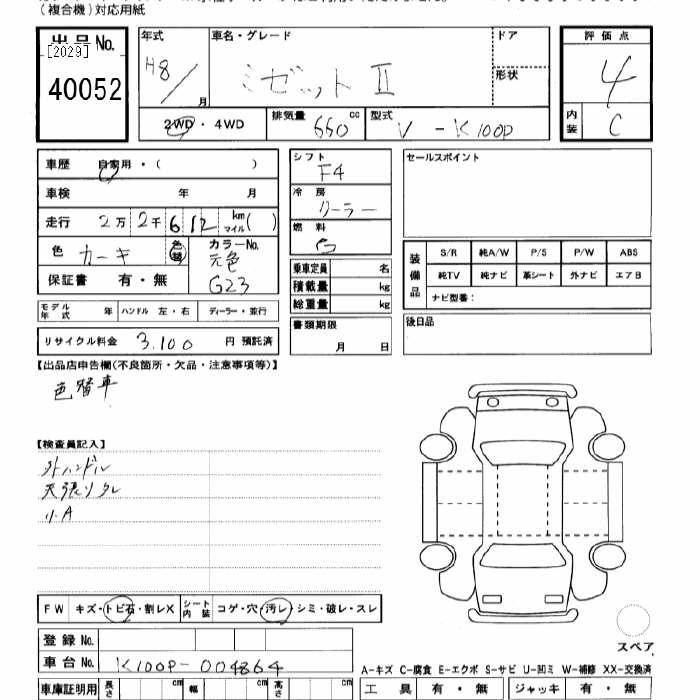 (複合機)対応用紙
出品No.
[2029]
40052
年式
H8/
月
車名・グレード
ミゼットⅡ
ドア
形状
評価点
4
内装
C
2WD・4WD
排気量
660
cc
型式
V-K100P
車歴 自家用・( )
車検 年 月
走行 2万2千612 km マイル( )
色 カーキ 色替
カラーNo.
元色
G23
保証書 有・無
モデル年式 年 ハンドル 左・右 ディーラー・並行
リサイクル料金 3,100 円 預託済
シフト
F4
冷房
クーラー
燃料
G
乗車定員 名
積載量 kg
総重量 kg
書類期限
月 日
セールスポイント
装備品
S/R 純A/W P/S P/W ABS
純TV 純ナビ 革シート 外ナビ エアB
ナビ型番:
後日品
【出品店申告欄(不良箇所・欠品・注意事項等)】
色替車
【検査員記入】
外ハンドル
天張りタレ
小A
FW キズ・トビ石・割レX シート内装 コゲ・穴・汚レ・シミ・破レ・スレ
登録No.
車台No. K100P-004864
車庫証明用 長さ cm 幅 cm 高さ cm
スペア
A-キズ C-腐食 E-エクボ S-サビ U-凹ミ W-補修 XX-交換済
工具 有・無 ジャッキ 有・無